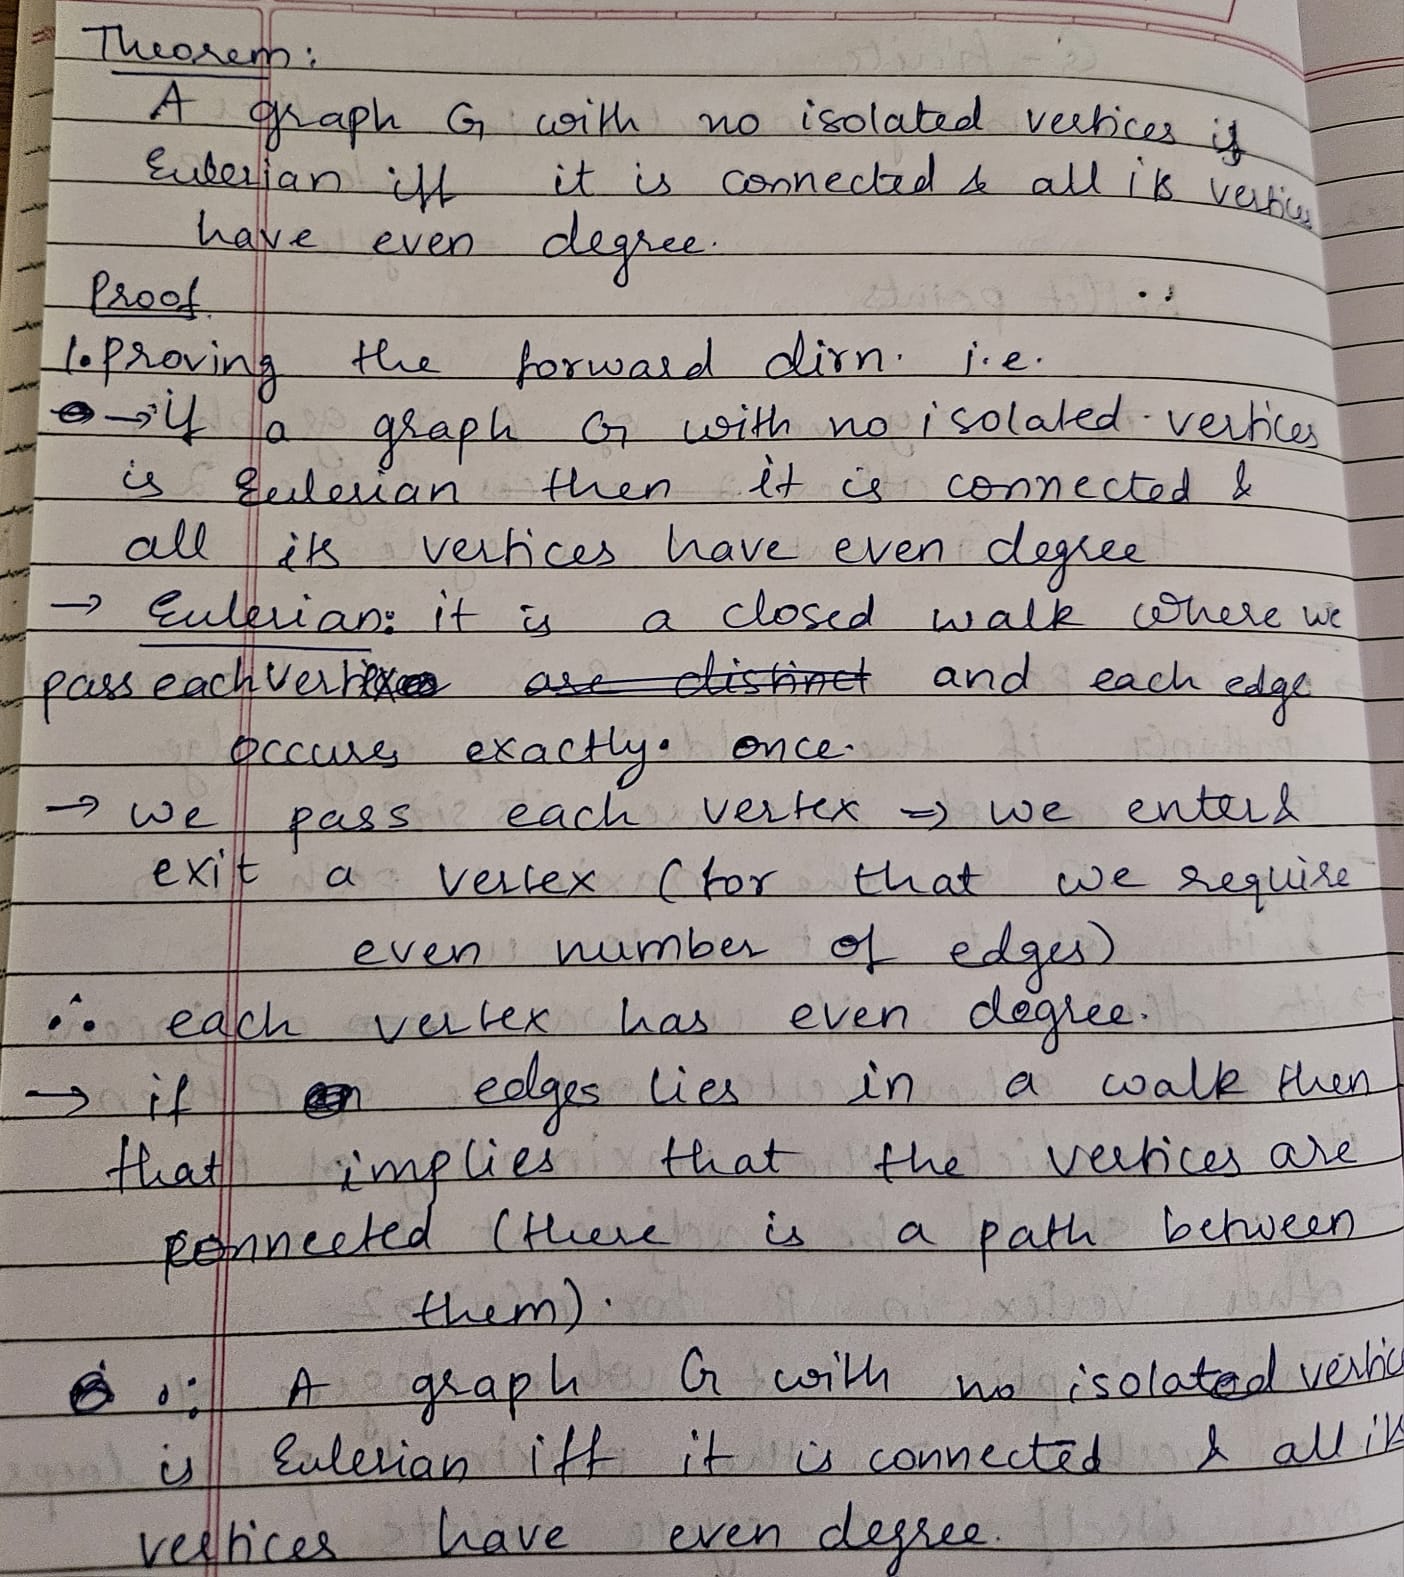 Theorem:
A graph G with no isolated vertices is
Eulerian iff it is connected & all its vertices
have even degree.
Proof.
1. Proving the forward dirn. i.e.
→ if a graph G with no isolated vertices
is Eulerian then it is connected &
all its vertices have even degree
→ Eulerian: it is a closed walk where we
pass each vertex are distinct and each edge
occurs exactly once.
→ we pass each vertex ⇒ we enter &
exit a vertex (for that we require
even number of edges)
∴ each vertex has even degree.
→ if edges lies in a walk then
that implies that the vertices are
connected (there is a path between
them).
∴ A graph G with no isolated vertic
is Eulerian iff it is connected & all its
vertices have even degree.